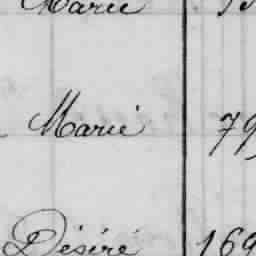 Marie
Marié 79
Désiré 169